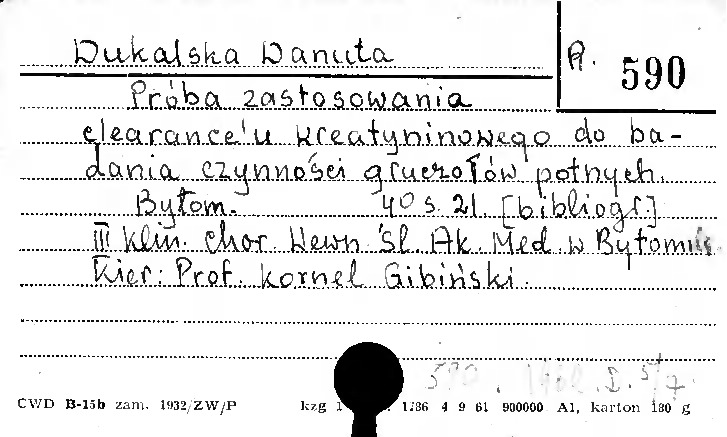 Dukalska Danuta
R. 590
Próba zastosowania
clearance'u kreatyninowego do ba-
dania czynności gruczołów potnych.
Bytom. 40 s. 21. [bibliogr.]
III Klin. Chor. Wewn. Śl. Ak. Med. w Bytomiu
Kier: Prof. Kornel Gibiński.
590. I. 57
CWD B-15b zam. 1932/ZW/P kzg 1786 4 9 61 900000 A1, karton 180 g